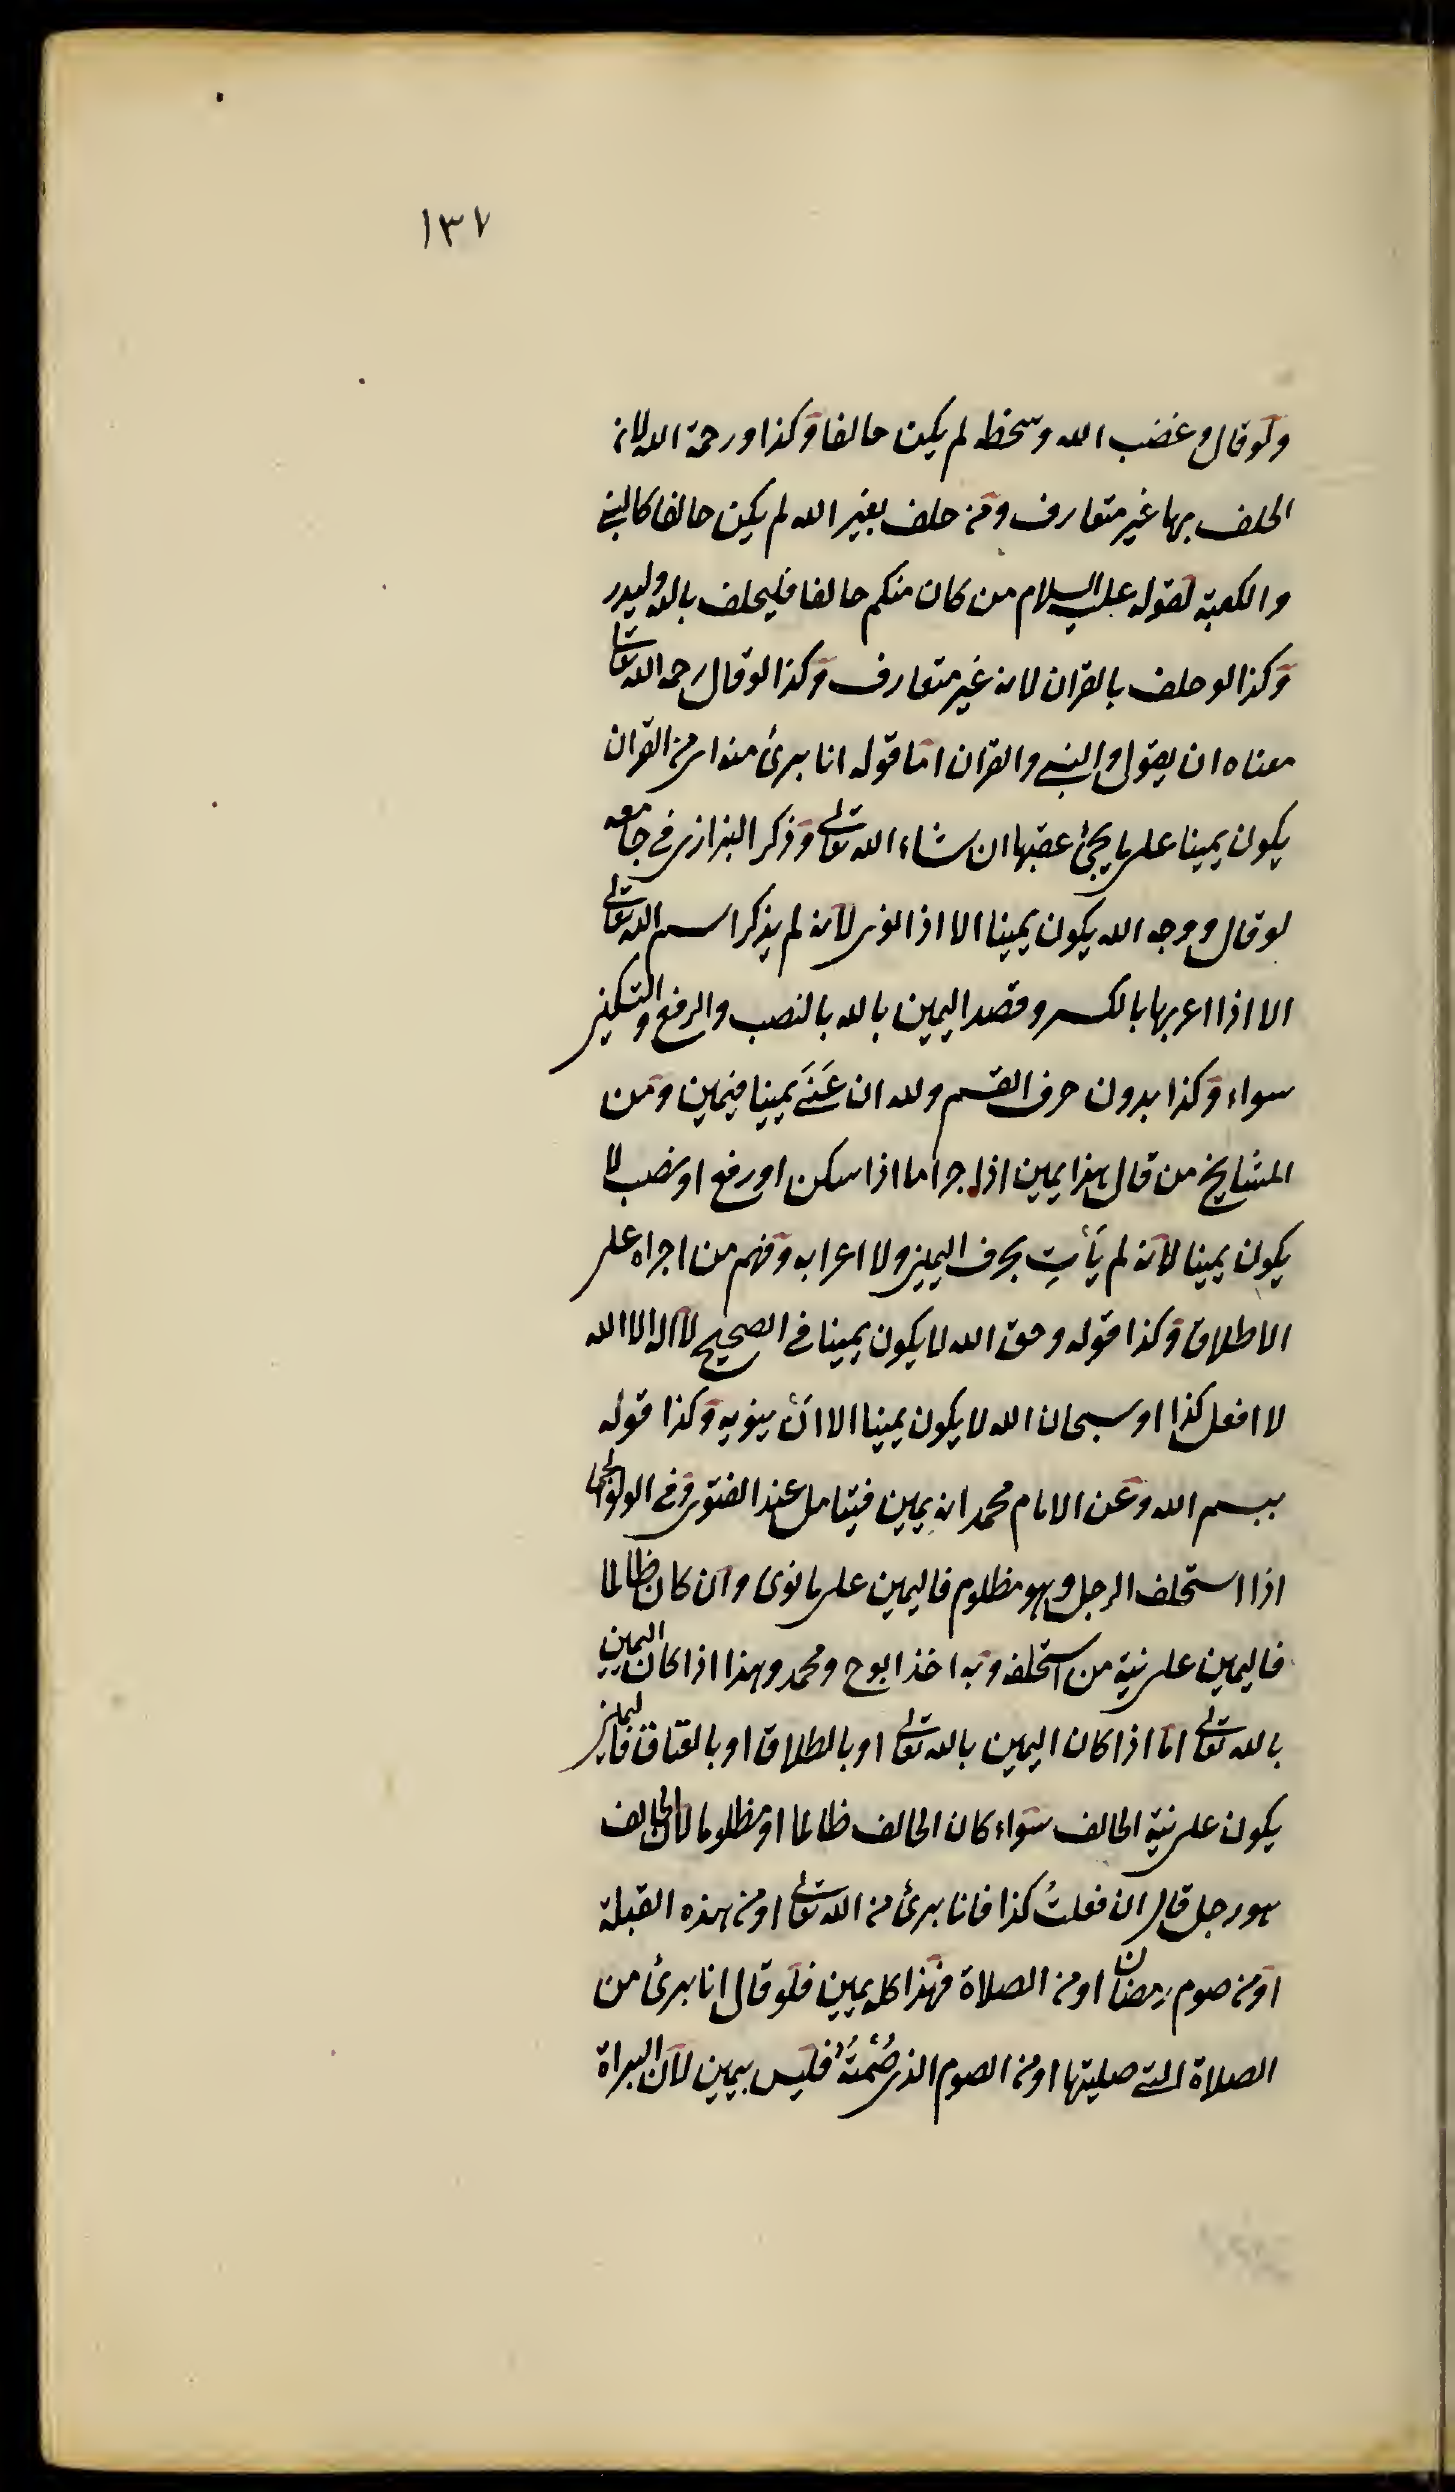 ١٣٧
ولو قال وغضب الله وسخطه لم يكن حالفا وكذا ورحمة الله لان
الحلف بها غير متعارف ومن حلف بغير الله لم يكن حالفا كالنبي
والكعبة لقوله عليه السلام من كان منكم حالفا فليحلف بالله وليذر
وكذا لو حلف بالقران لانه غير متعارف وكذا لو قال رحمه الله تعالى
معناه ان يقول والنبي والقران اما قوله انا برئ منه اى من القران
يكون يمينا على ما يجئ عقبها ان شاء الله تعالى وذكر البزازى في جامعه
لو قال ووجه الله يكون يمينا الا اذا نوى لانه لم يذكر اسم الله تعالى
الا اذا اعربها بالكسر وقصد اليمين بالله بالنصب والرفع والتسكين
سواء وكذا بدون حرف القسم ولله ان عَنَى يمينا فيمين ومن
المشايخ من قال هذا يمين اذا جر اما اذا سكن او رفع او نصب لا
يكون يمينا لانه لم يَأتِ بحرف اليمين ولا اعرابه ومنهم من اجراه على
الاطلاق وكذا قوله وحق الله لا يكون يمينا فى الصحيح لا اله الا الله
لا افعل كذا او سبحان الله لا يكون يمينا الا اَنْ ينويه وكذا قوله
ببسم الله وعن الامام محمد انه يمين فيتامل عند الفتوى وفى الولوالجى
اذا استحلف الرجل وهو مظلوم فاليمين على ما نوى وان كان ظالما
فاليمين على نية من استحلفه وبه اخذ ابوح ومحمد وهذا اذا كان اليمين
بالله تعالى اما اذا كان اليمين بالله تعالى او بالطلاق او بالعتاق فاليمين
يكون على نية الحالف سواء كان الحالف ظالما او مظلوما لان الحالف
هو رجل قال ان فعلتُ كذا فانا برئ من الله تعالى او من هذه القبلة
او من صوم رمضان او من الصلاة فهذا كله يمين فلو قال انا برئ من
الصلاة التى صليتها او من الصوم الذى صُمْتُهُ فليس بيمين لان البراة